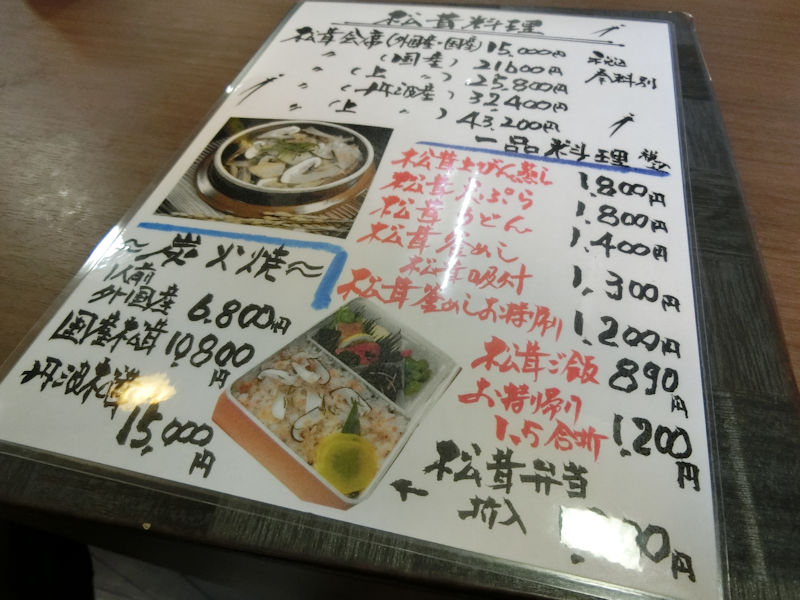 松茸料理
松茸会席(外国産・国産) 15,000円
〃 (国産) 21600円
〃 (上 〃) 25.800円
〃 (丹波産) 32,400円
〃 (上 〃) 43,200円
税込
席料別
一品料理 税込
松茸土びん蒸し 1,800円
松茸天ぷら 1,800円
松茸うどん 1,400円
松茸釜めし
松茸吸付 1,300円
松茸釜めしお持帰り 1,200円
松茸ご飯 890円
お持帰り
1.5合折 1,200円
松茸弁当
折入 00円
~炭火焼~
1人前
外国産 6.800円
国産松茸 10,800円
丹波松茸 15,000円